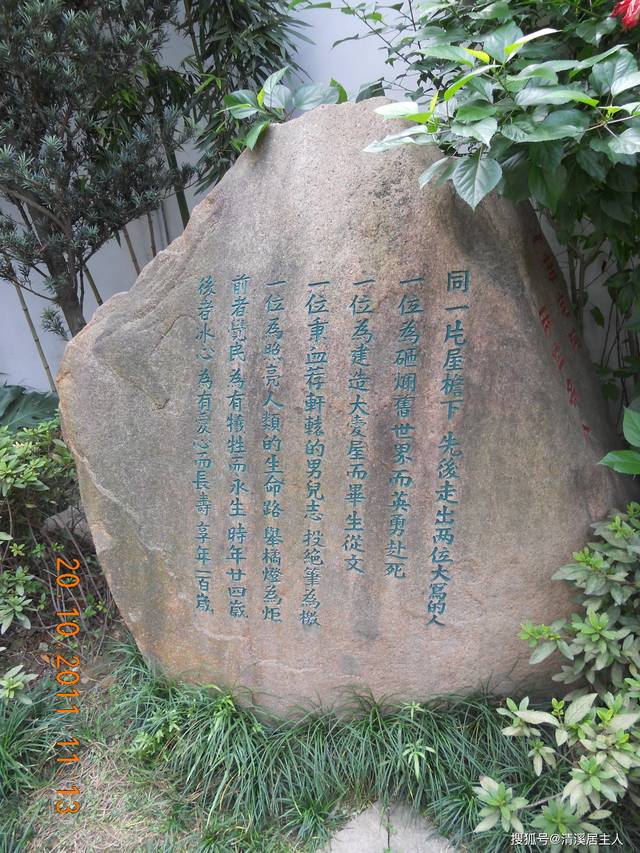 同一片屋檐下 先後走出两位大寫的人
一位為砸爛舊世界而英勇赴死
一位為建造大愛屋而畢生從文
一位秉血荐軒轅的男兒志 投絶筆為檄
一位為照亮人類的生命路 舉橘燈為炬
前者覺民 為有犧牲而永生 時年廿四歲
後者冰心 為有愛心而長壽 享年一百歲
20 10 2011 11 13
搜狐号@清溪居主人